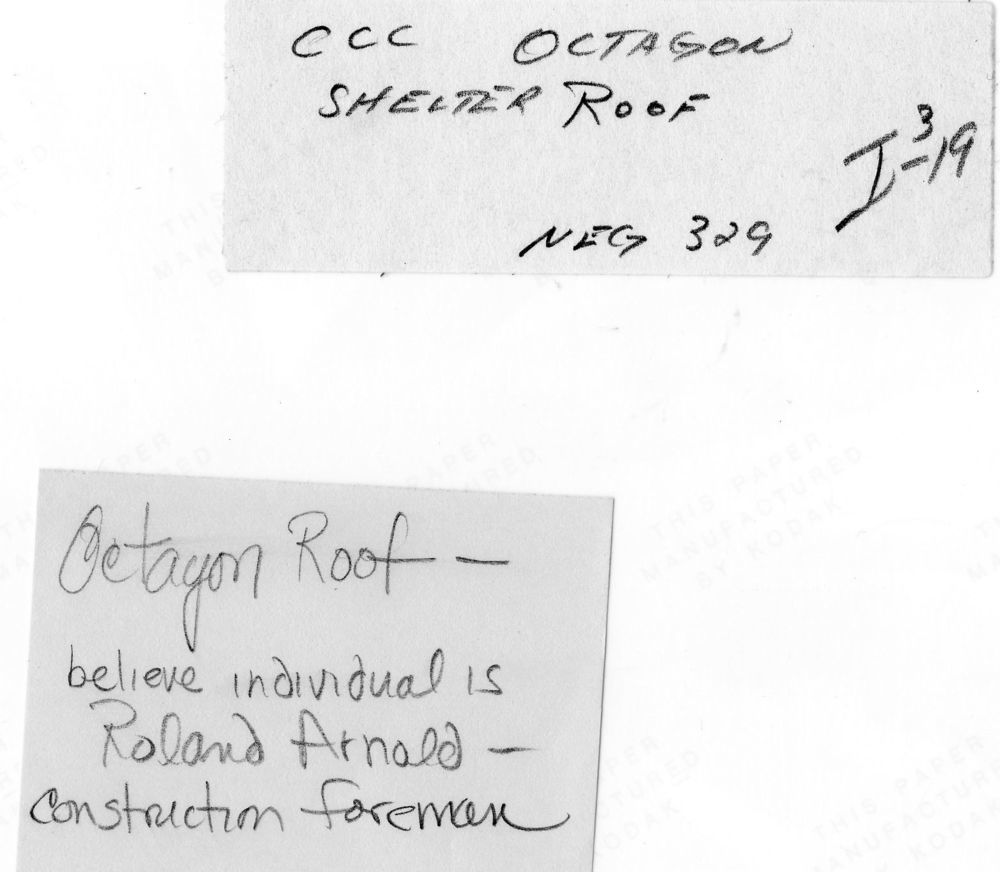 CCC OCTAGON
SHELTER ROOF
I-3-19
NEG 329
Octagon Roof —
believe individual is
Roland Arnold —
construction foreman
THIS PAPER
MANUFACTURED
BY KODAK